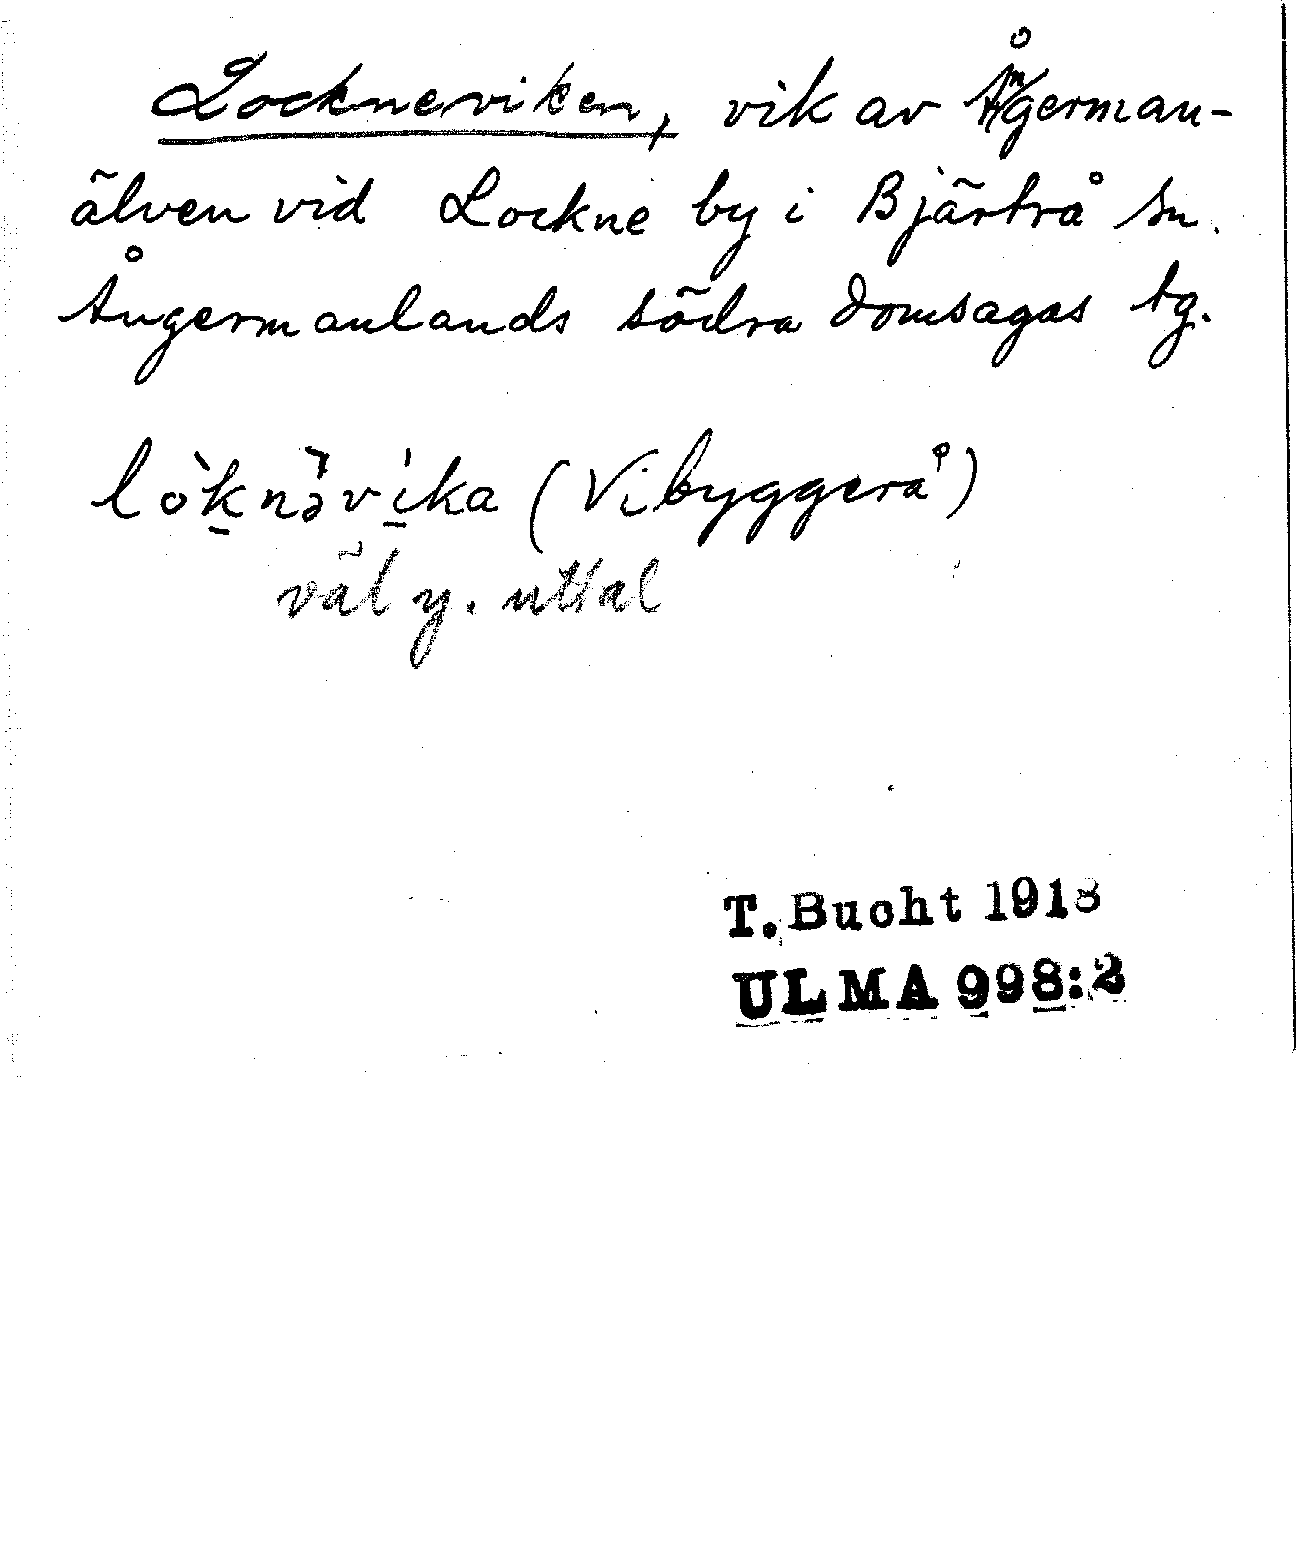 Lockneviken, vik av Ångerman-
älven vid Lockne by i Bjärtrå sn.
Ångermanlands södra domsagas tg.
lòk̲nə̀ví̲ka (Vibyggerå)
väl y. uttal
T. Bucht 1918
ULMA 998:2